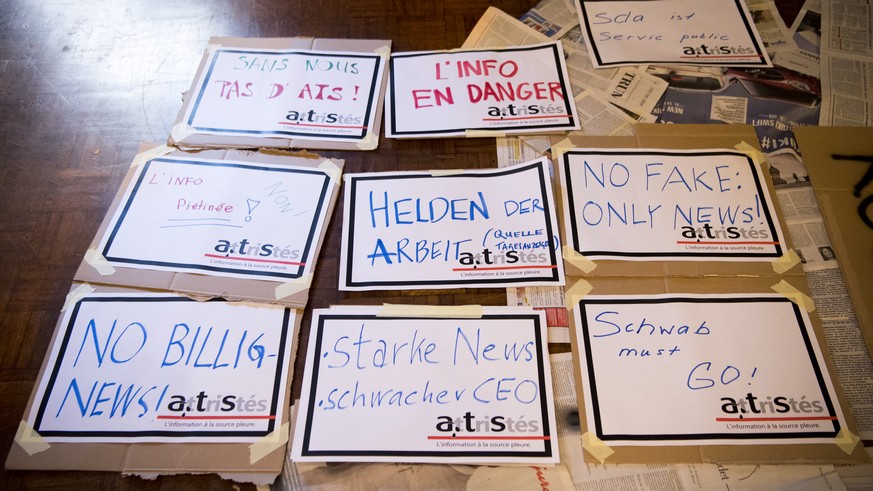 Sda ist
Service public
attristés
SANS NOUS
PAS D'ATS !
attristés
L'information à la source pleure.
L'INFO
EN DANGER
attristés
L'information à la source pleure.
L'INFO
Piétinée !
NON!
attristés
L'information à la source pleure.
HELDEN DER
ARBEIT (QUELLE
TAGESANZEIGER)
attristés
L'information à la source pleure.
NO FAKE:
ONLY NEWS!
attristés
L'information à la source pleure.
NO BILLIG-
NEWS!
attristés
L'information à la source pleure.
• Starke News
• schwacher CEO
attristés
L'information à la source pleure.
Schwab
must
GO!
attristés
L'information à la source pleure.